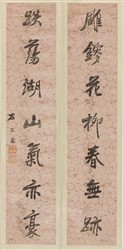 雕鎪花柳春無跡
跌蕩湖山氣亦豪